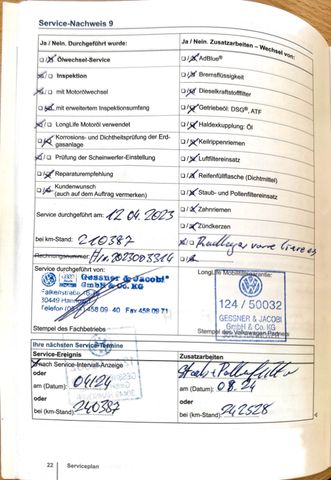 Service-Nachweis 9
Ja / Nein. Durchgeführt wurde:
Ölwechsel-Service
Inspektion
mit Motorölwechsel
mit erweitertem Inspektionsumfang
LongLife Motoröl verwendet
Korrosions- und Dichtheitsprüfung der Erd-
gasanlage
Prüfung der Scheinwerfer-Einstellung
Reparaturempfehlung
Kundenwunsch
(auch auf dem Auftrag vermerken)
Service durchgeführt am: 12.04.2023
bei km-Stand: 210387
Rechnungsnummer:
Service durchgeführt von:
Gessner & Jacobi
GmbH & Co. KG
Telefon 458 09 40 Fax 458 09 71
Stempel des Fachbetriebs
Ja / Nein. Zusatzarbeiten – Wechsel von:
AdBlue®
Bremsflüssigkeit
Dieselkraftstofffilter
Getriebeöl: DSG®, ATF
Haldexkupplung: Öl
Keilrippenriemen
Luftfiltereinsatz
Reifenfüllflasche (Dichtmittel)
Staub- und Pollenfiltereinsatz
Zahnriemen
Zündkerzen
LongLife Mobilitätsgarantie:
124 / 50032
GESSNER & JACOBI
GmbH & Co. KG
Stempel des Volkswagen Partners
Ihre nächsten Service-Termine
Service-Ereignis
nach Service-Intervall-Anzeige
oder
am (Datum): 04/24
oder
bei (km-Stand): 240387
Zusatzarbeiten
am (Datum): 08.24
oder
bei (km-Stand): 242528
22 Serviceplan